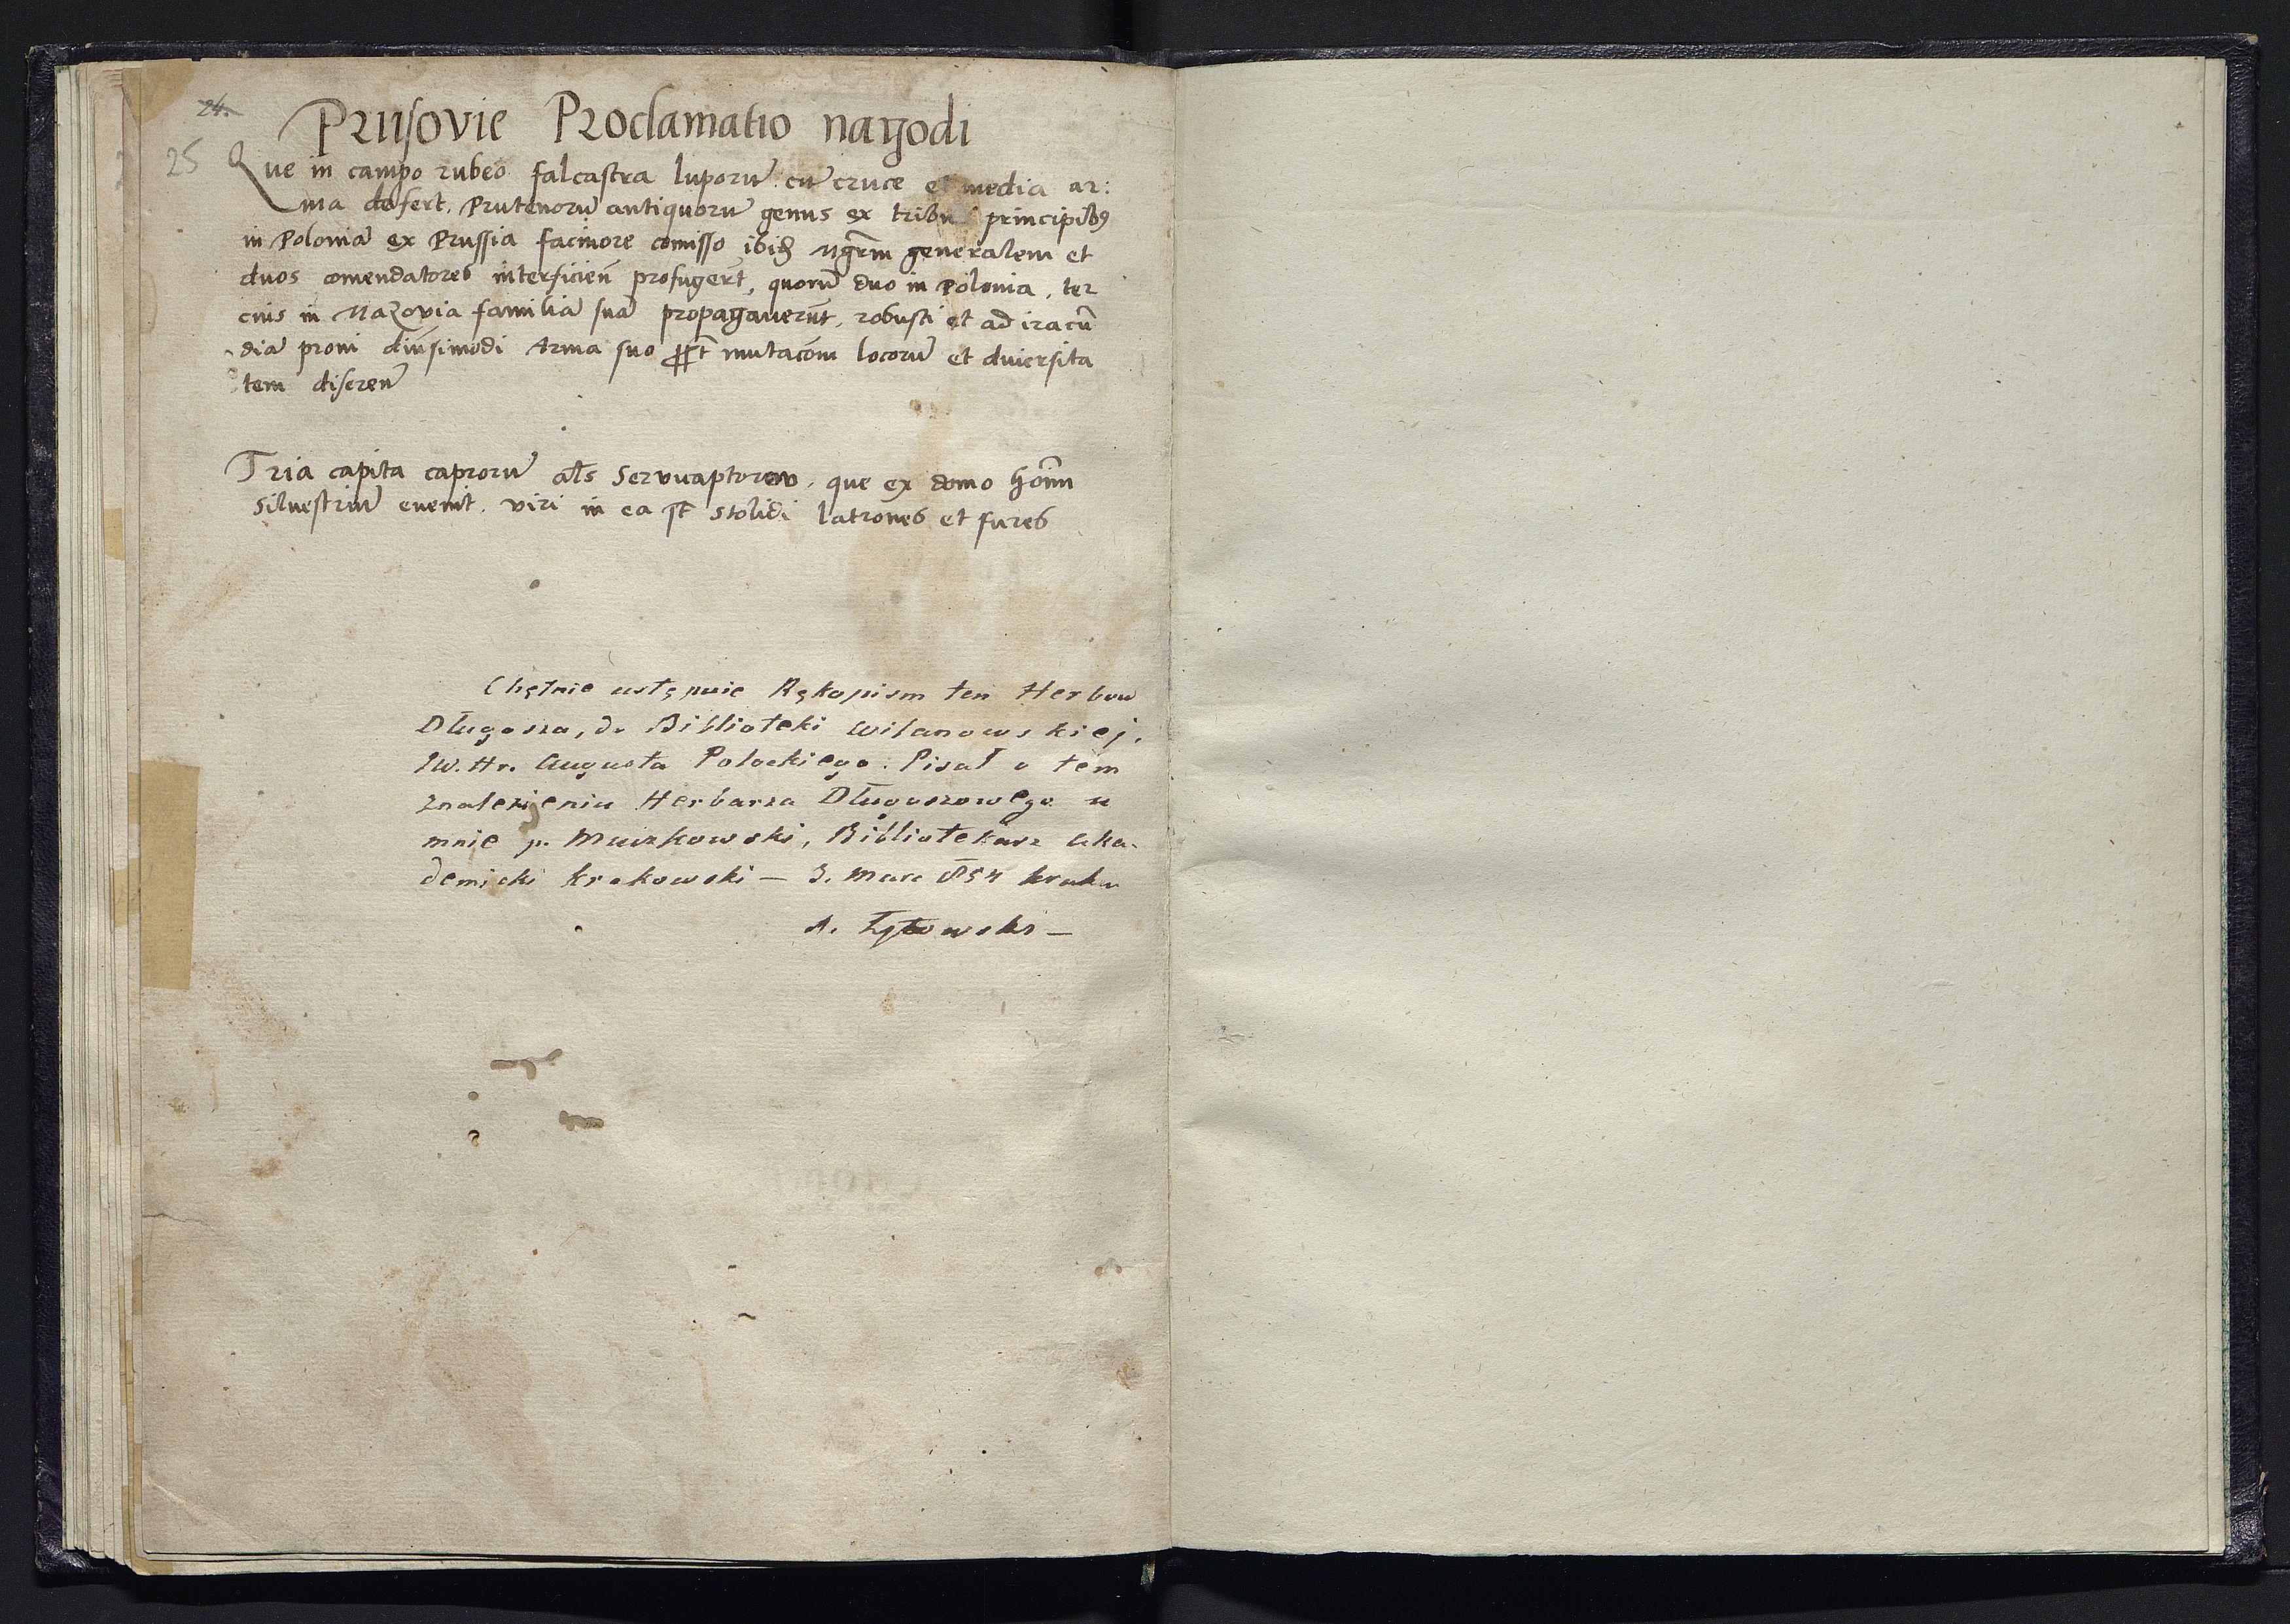 24.
25
Prusovie Proclamatio nagodi
Que in campo rubeo falcastra luporũ cũ cruce et media ar:
ma defert. Prutenorũ antiquorũ genus ex tribus principibꝰ
in Poloniã ex Prussia facinore comisso ibidẽ mgrm generalem et
duos comendatores interficien̄ profugert̄, quorũ duo in Polonia, ter
cius in Mazovia familiã suã propagauerũt, robusti et ad iracũ
diã proni Arma suo mutacõm locorũ et diuersita
tem discren̄
Tria capita caprorũ als̄ que ex domo hoĩm
siluestriũ evenit. viri in ea st̄ stolidi latrones et fures
Chętnie ustępuie Rękopism ten Herbów
Długosza, do Biblioteki Wilanowskiej.
JW. Hr. Augusta Potockiego. Pisał o tem
znalezieniu Herbarza Długoszowego u
mnie p. Muczkowski, Bibliotekarz aka-
demicki krakowski — 3. Marc 854
A.